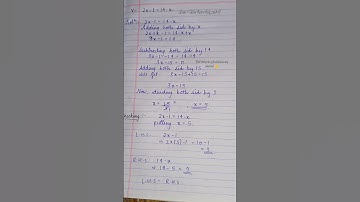 V. 2x-1 = 14-x
Solⁿ. 2x-1 = 14-x
Adding both side by x
2x+x-1 = 14-x+x
3x-1 = 14
Subtracting both side by 14
3x-1-14 = 14-14
3x-15 = 0
Adding both side by 15
we get 3x-15+15 = 15
3x = 15
Now dividing both side by 3
x = 5
Checking:- 2x-1 = 14-x
putting x = 5
L.H.S. 2x-1
⇒ 2×(5)-1 ⇒ 10-1
= 9
R.H.S. 14-x
⇒ 14-5 = 9
L.H.S = R.H.S.